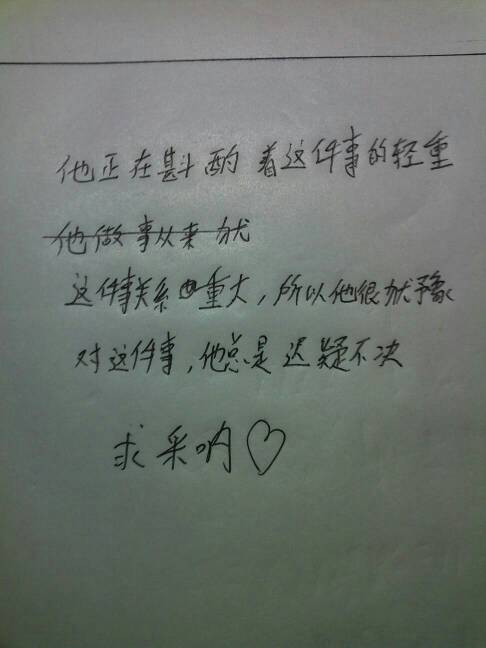 他正在斟酌着这件事的轻重
他做事从来犹
这件事关系重大，所以他很犹豫
对这件事，他总是迟疑不决
求采呐♡